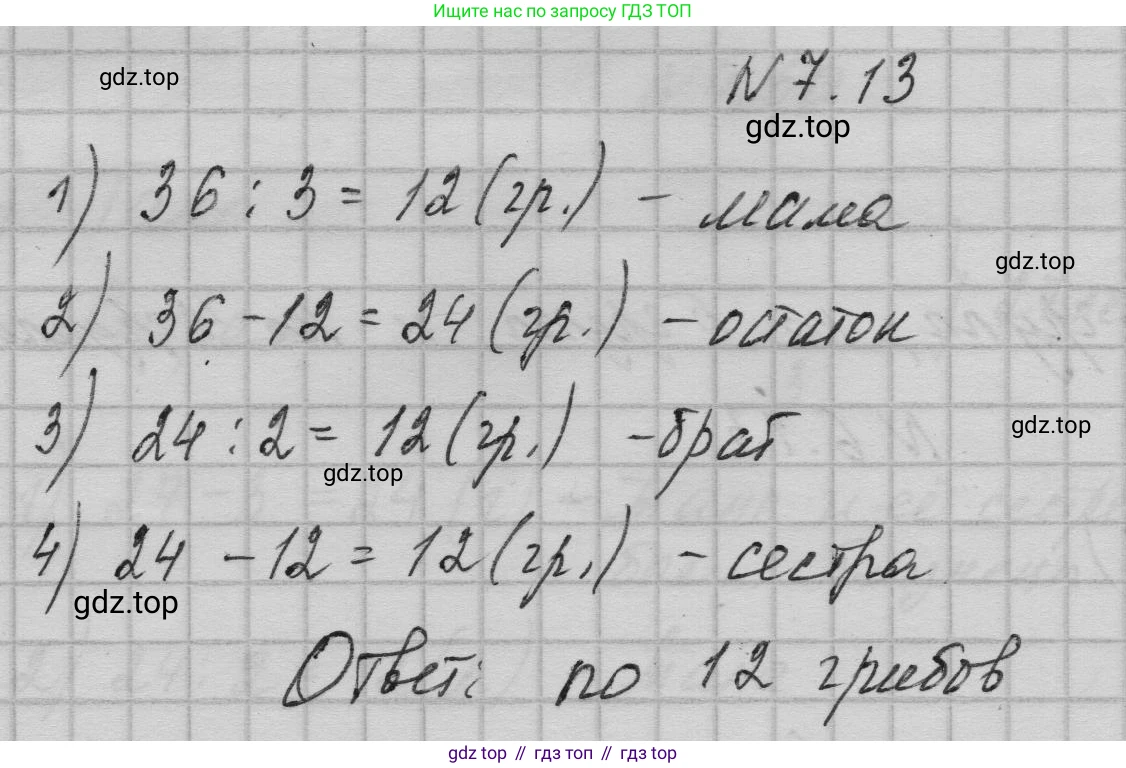 Ищите нас по запросу ГДЗ ТОП
gdz.top
N 7.13
gdz.top
1) 36 : 3 = 12 (гр.) - мама
gdz.top
2) 36 - 12 = 24 (гр.) - остаток
3) 24 : 2 = 12 (гр.) - брат
gdz.top
gdz.top
4) 24 - 12 = 12 (гр.) - сестра
gdz.top
Ответ: по 12 грибов
gdz top // гдз топ // гдз top